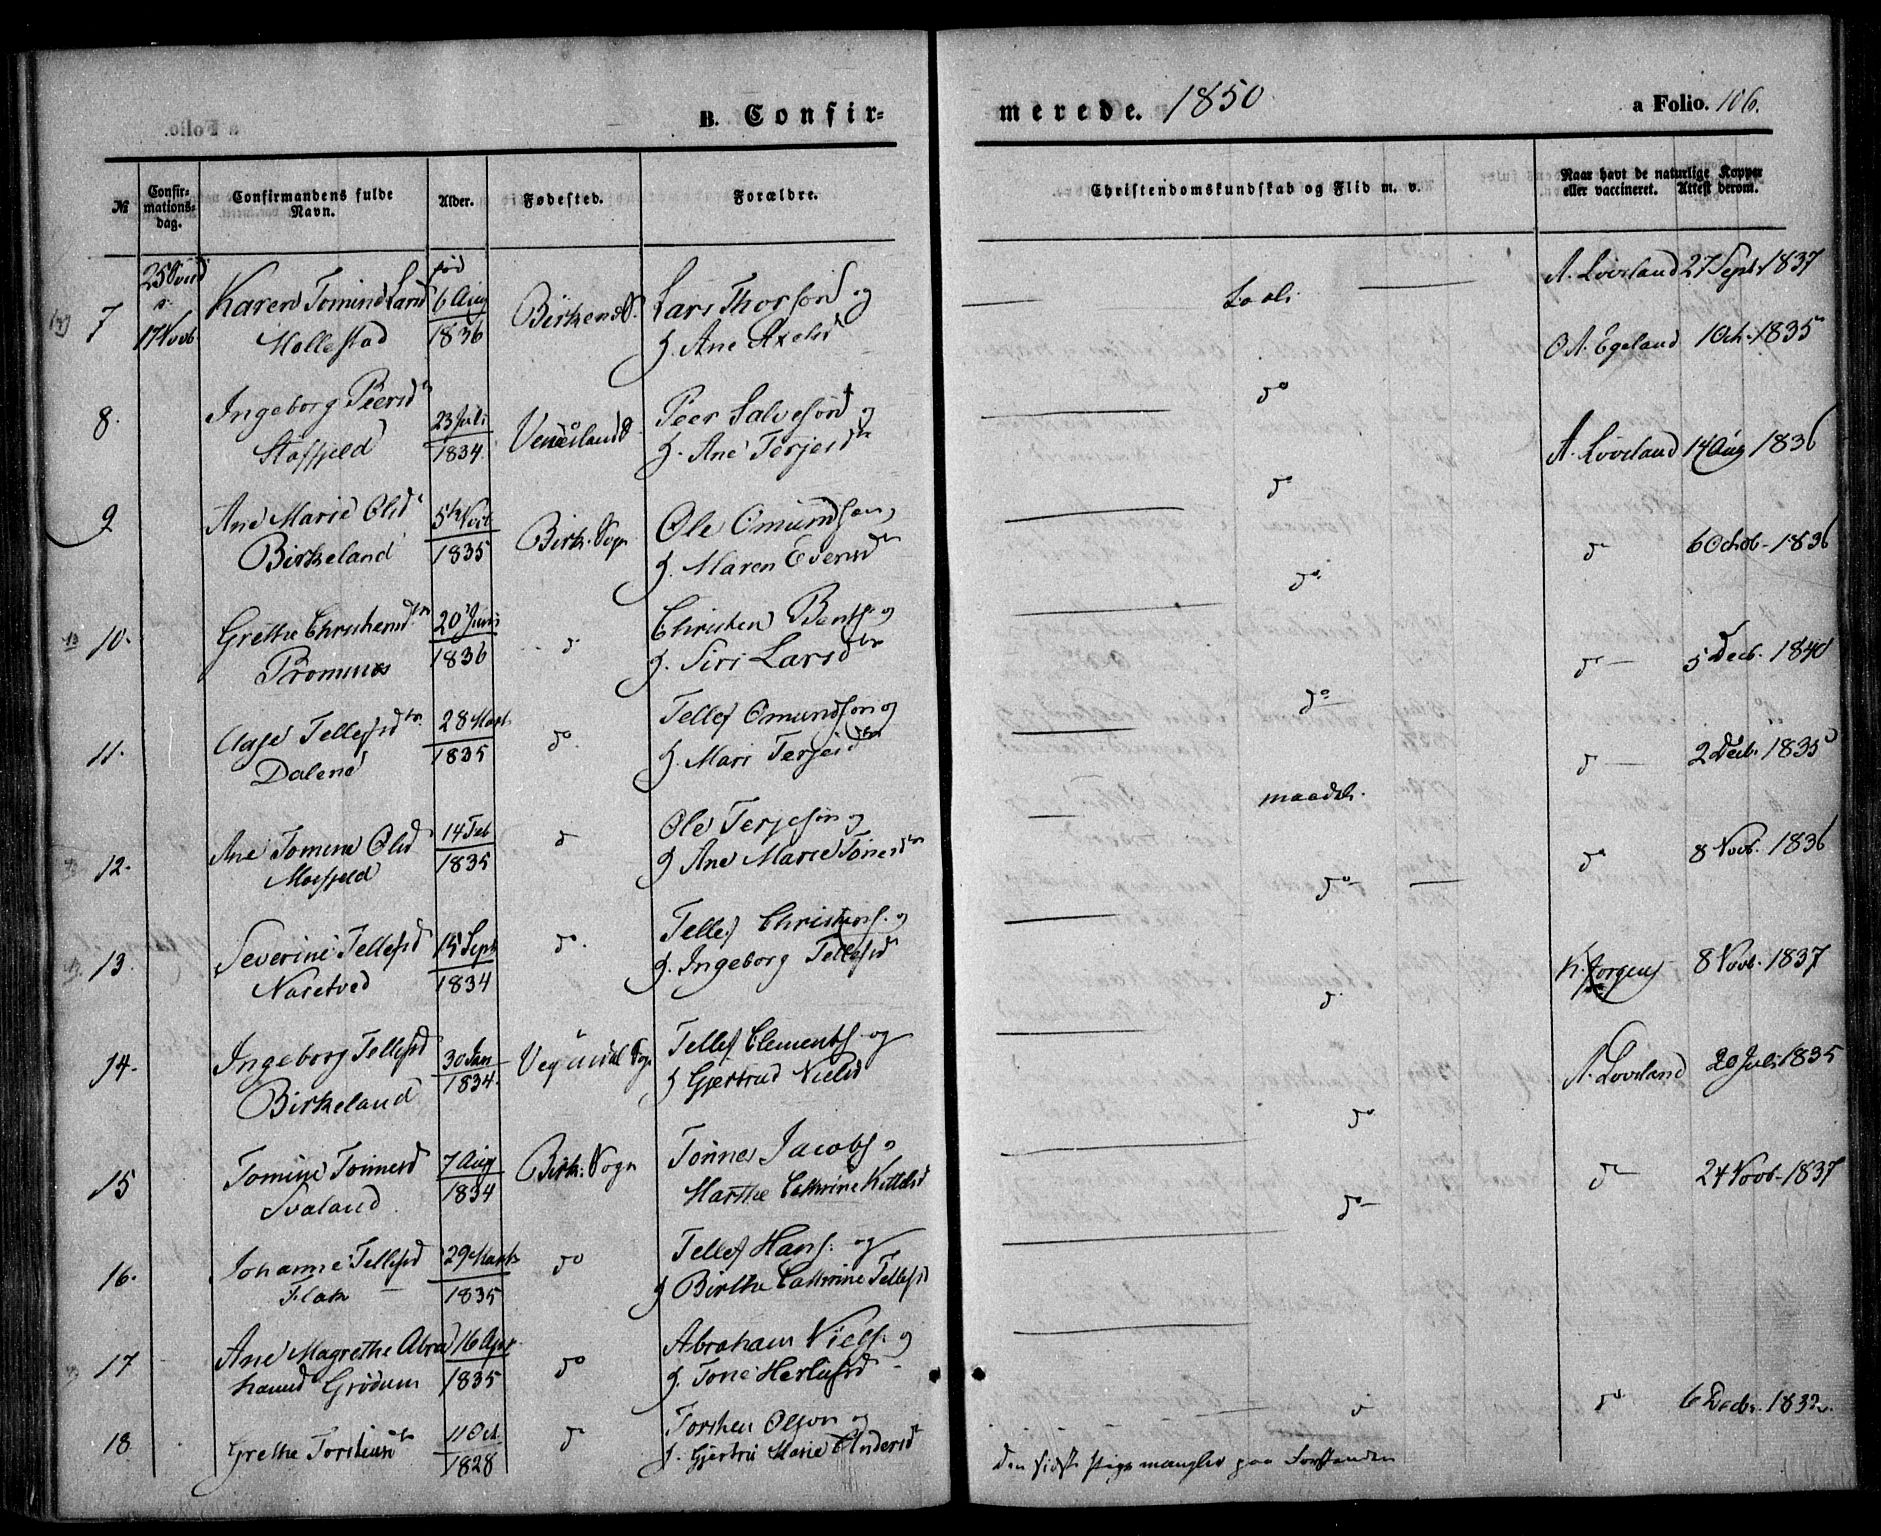 B. Confir-
merede. 1850
a Folio. 106.
№
Confir-
mations-
dag.
Confirmandens fulde
Navn.
Alder.
Fødested.
Forældre.
Christendomskundskab og Flid m. v.
Naar havt de naturlige Kopper
eller vaccineret. Attest derom.
7
17 Novb.
Karen Tomine Larsd
Mollestad
fød
6 Aug
1836
Birkenes
Lars Thorsøn og
H. Ane Axelsd
A. Løvland 27 Sept. 1837
8.
Ingeborg Peersdtr
Støfjeld
23 Juli
1834.
Vennesland S.
Peer Salvesøn og
H. Ane Terjesdtr
do
O. A. Egeland 1 Oct. 1835
9
Ane Marie Olsd
Birkeland
5te Novb
1835
Birk. Sogn
Ole Omundsøn
H. Maren Evensdtr
do
A. Løvland 14 Aug 1836
10.
Grethe Christensdtr
Tromnes
20 Juni
1836
do
Christen Bents. og
H. Siri Larsdtr
do
do 6 Octob. 1836
11.
Aase Tellefsdtr
Dalene
28 Mart
1835
do.
Tellef Omundsøn og
H. Mari Terjesdtr
do
do 5 Decb. 1840
12.
Ane Tomine Olsd
Mosfjeld
14 Feb
1835
do
Ole Terjesøn og
H. Ane Marie Tønesdtr
maadel.
do 2 Decb. 1835
13.
Severine Tellefsd
Nasetved
15 Sept
1834
do.
Tellef Christens. og
H. Ingeborg Tellefsd
do
do 8 Novb. 1836
14.
Ingeborg Tellefsd
Birkeland
30 Jan
1834.
Vegusdal Sogn
Tellef Clements. og
H Gjertrud Nielsd
do
K. Jørgens 8 Novb. 1837
15
Tomine Tønnesd
Svaland
7 Aug
1834
Birk. Sogn
Tønnes Jacobs. og
Marthe Cathrine Kittelsd
do
A. Løvland 20 Juli 1835
16.
Johanne Tellefsd
Flak
29 Marts
1835
do
Tellef Hans. og
H Birthe Cathrine Tellefsd
do
do 24 Novb. 1837
17
Ane Magrethe Abra
hamsd Grødum
16 Apr
1835
do
Abraham Niels. og
H. Tone Herlufsd
18.
Grethe Torstensdtr
11 Oct.
1828
do
Torsten Olson og
H. Gjertru Marie Andersd
do
do 6 Decbr. 1832.
Den sidste Pige mangler paa Forstanden